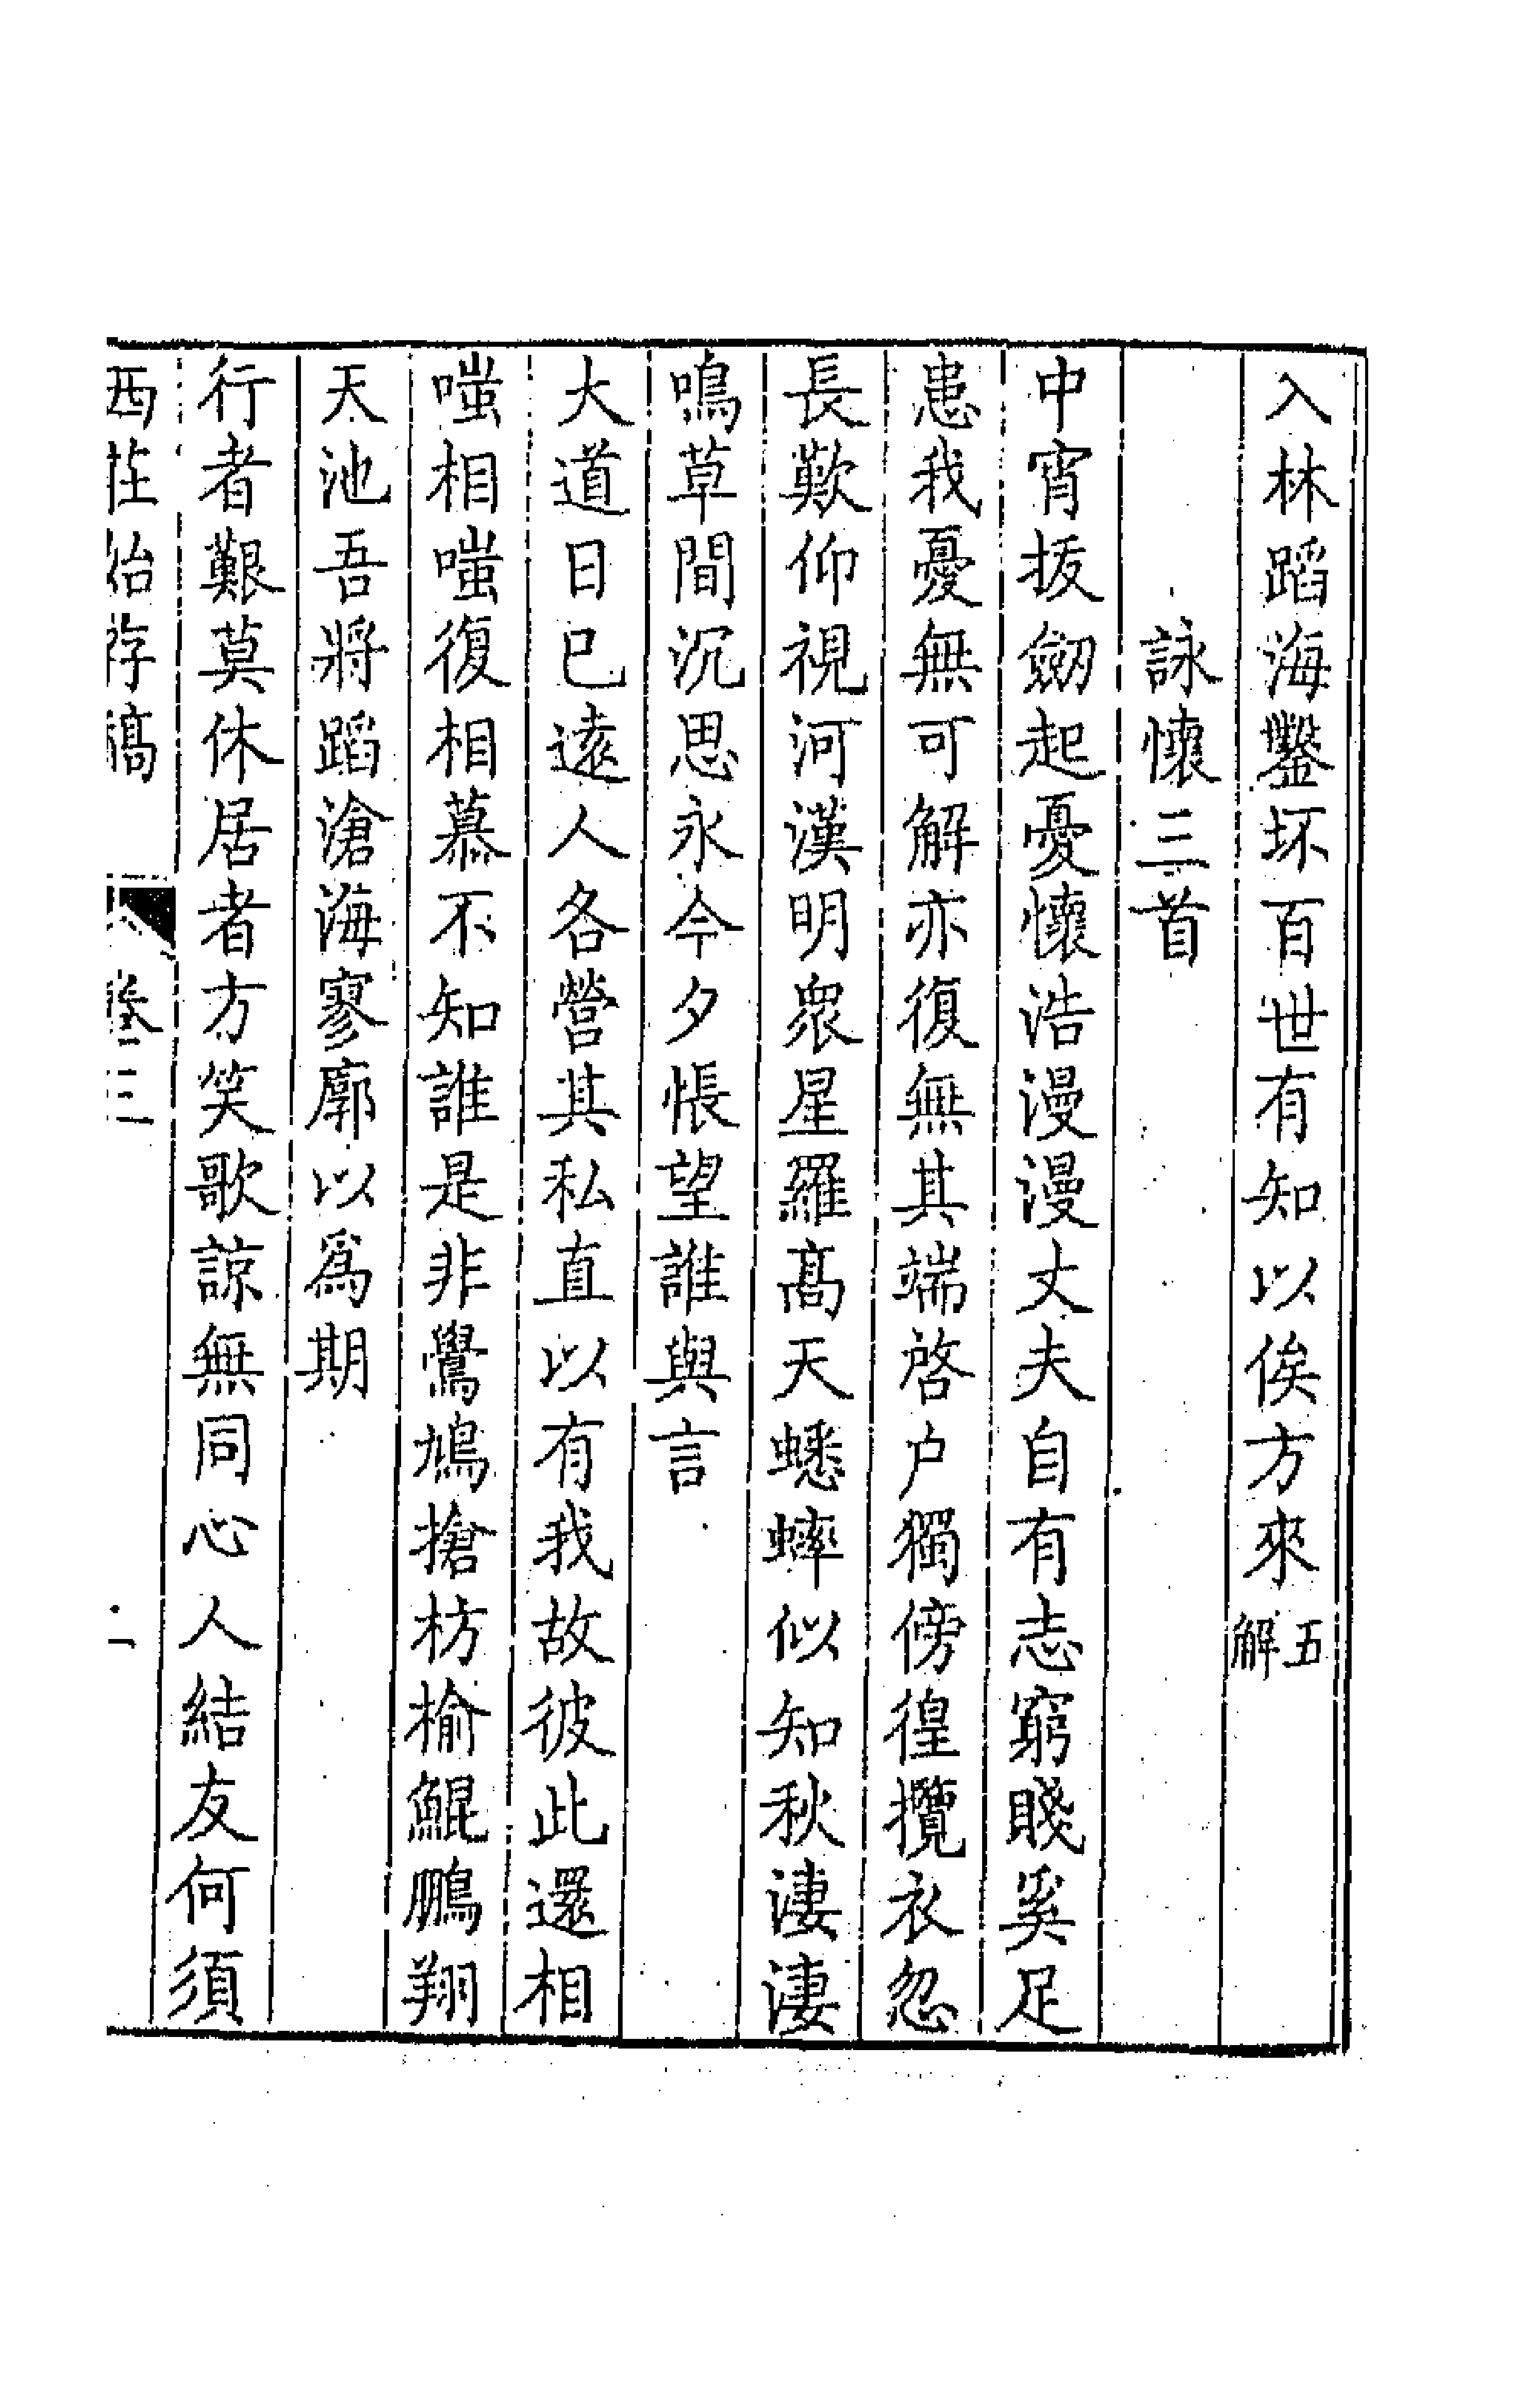 入林蹈海鑿坏百世有知以俟方來五解
詠懷三首
中宵拔劒起憂懷浩漫漫丈夫自有志窮賤奚足
患我憂無可解亦復無其端啓户獨傍徨攬衣忽
長歎仰視河漢明衆星羅髙天蟋蟀似知秋淒淒
鳴草間沉思永今夕悵望誰與言
大道日已遠人各營其私直以有我故彼此還相
嗤相嗤復相慕不知誰是非鷽鳩搶枋榆鯤鵬翔
天池吾將蹈滄海寥廓以爲期
行者艱莫休居者方笑歌諒無同心人結友何須
西 存稿 卷三